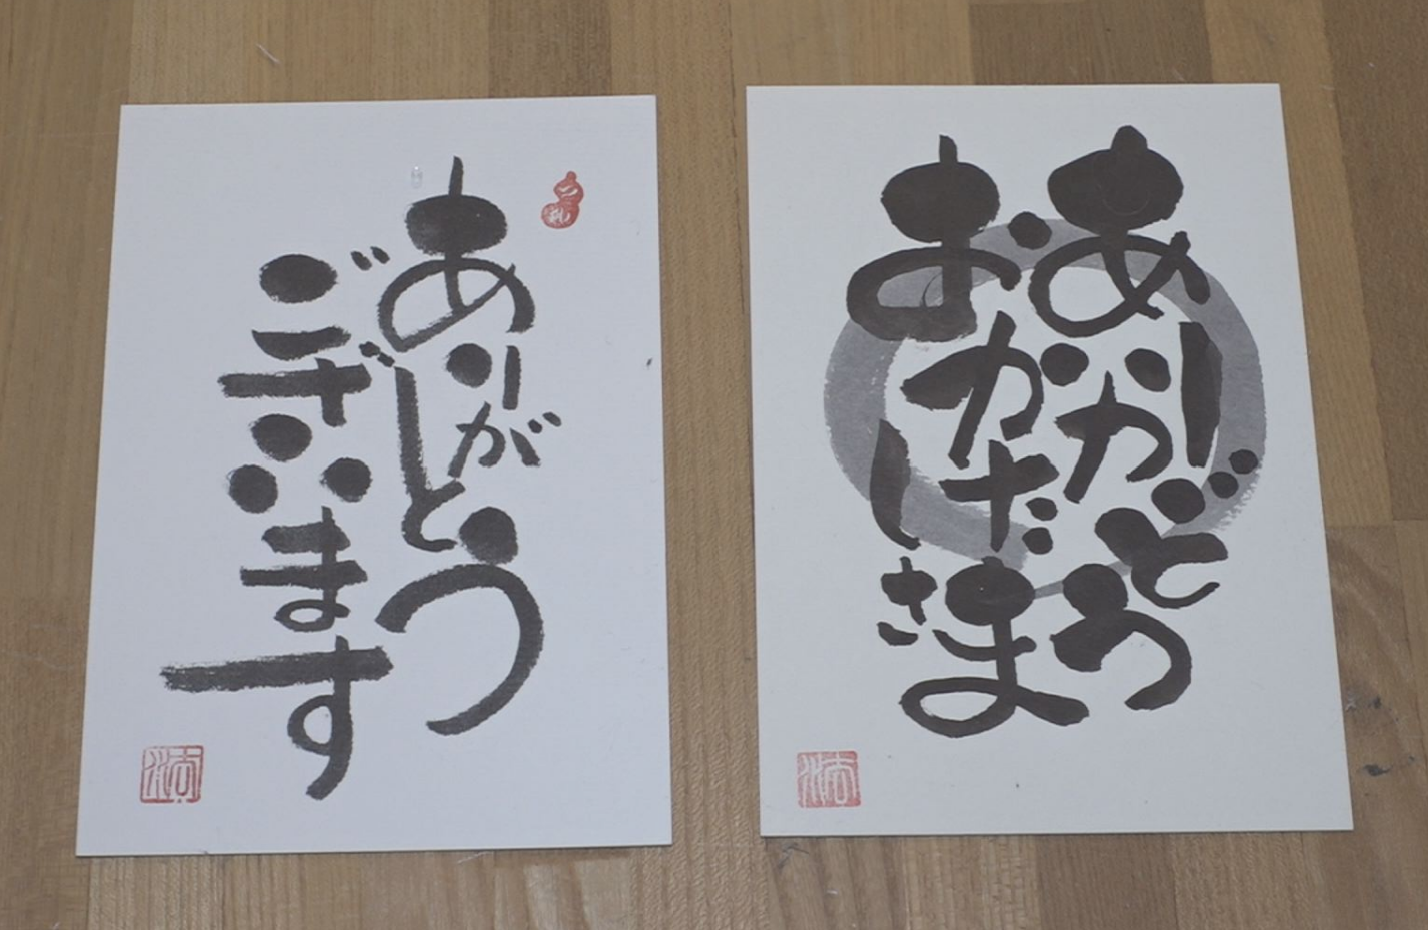 ありがとう
ございます
ありがとう
おかげさま